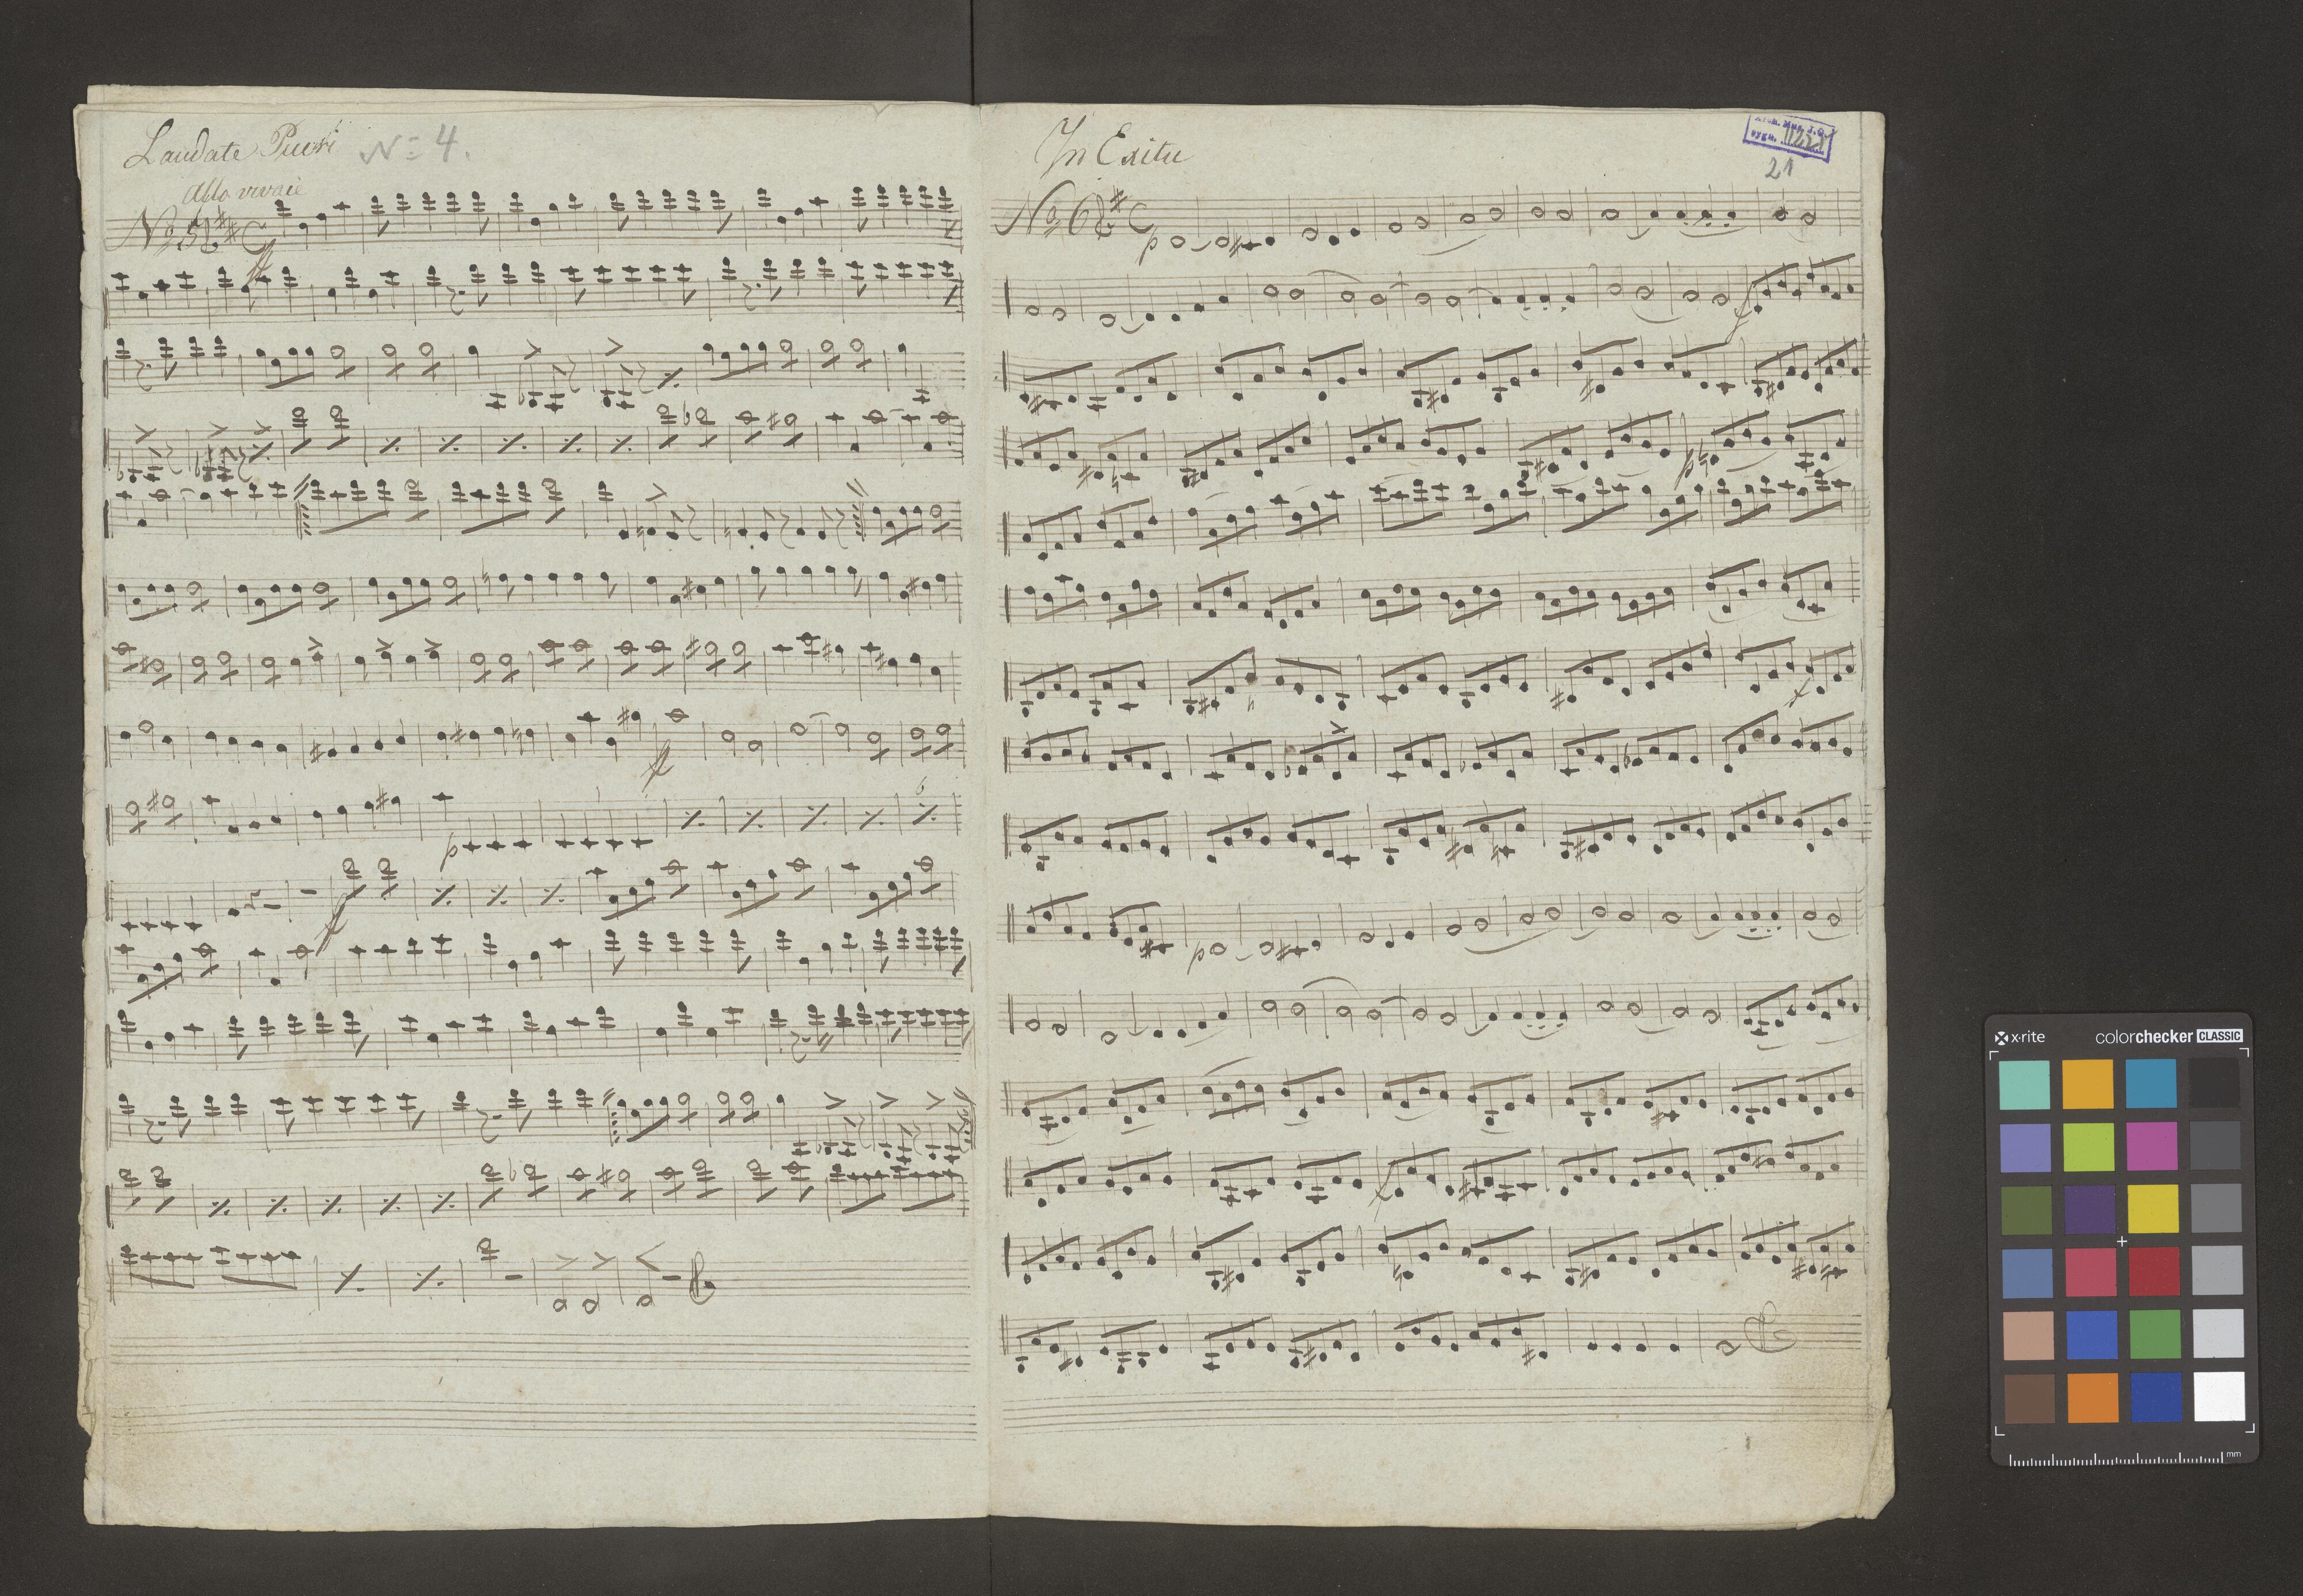 Laudate Pueri N=4.
Allo vivace
No 5. C
ff
ff
p
ff
In Exitu
No 6 C
p
f
p
f
p
f
21
x-rite
colorchecker CLASSIC
mm